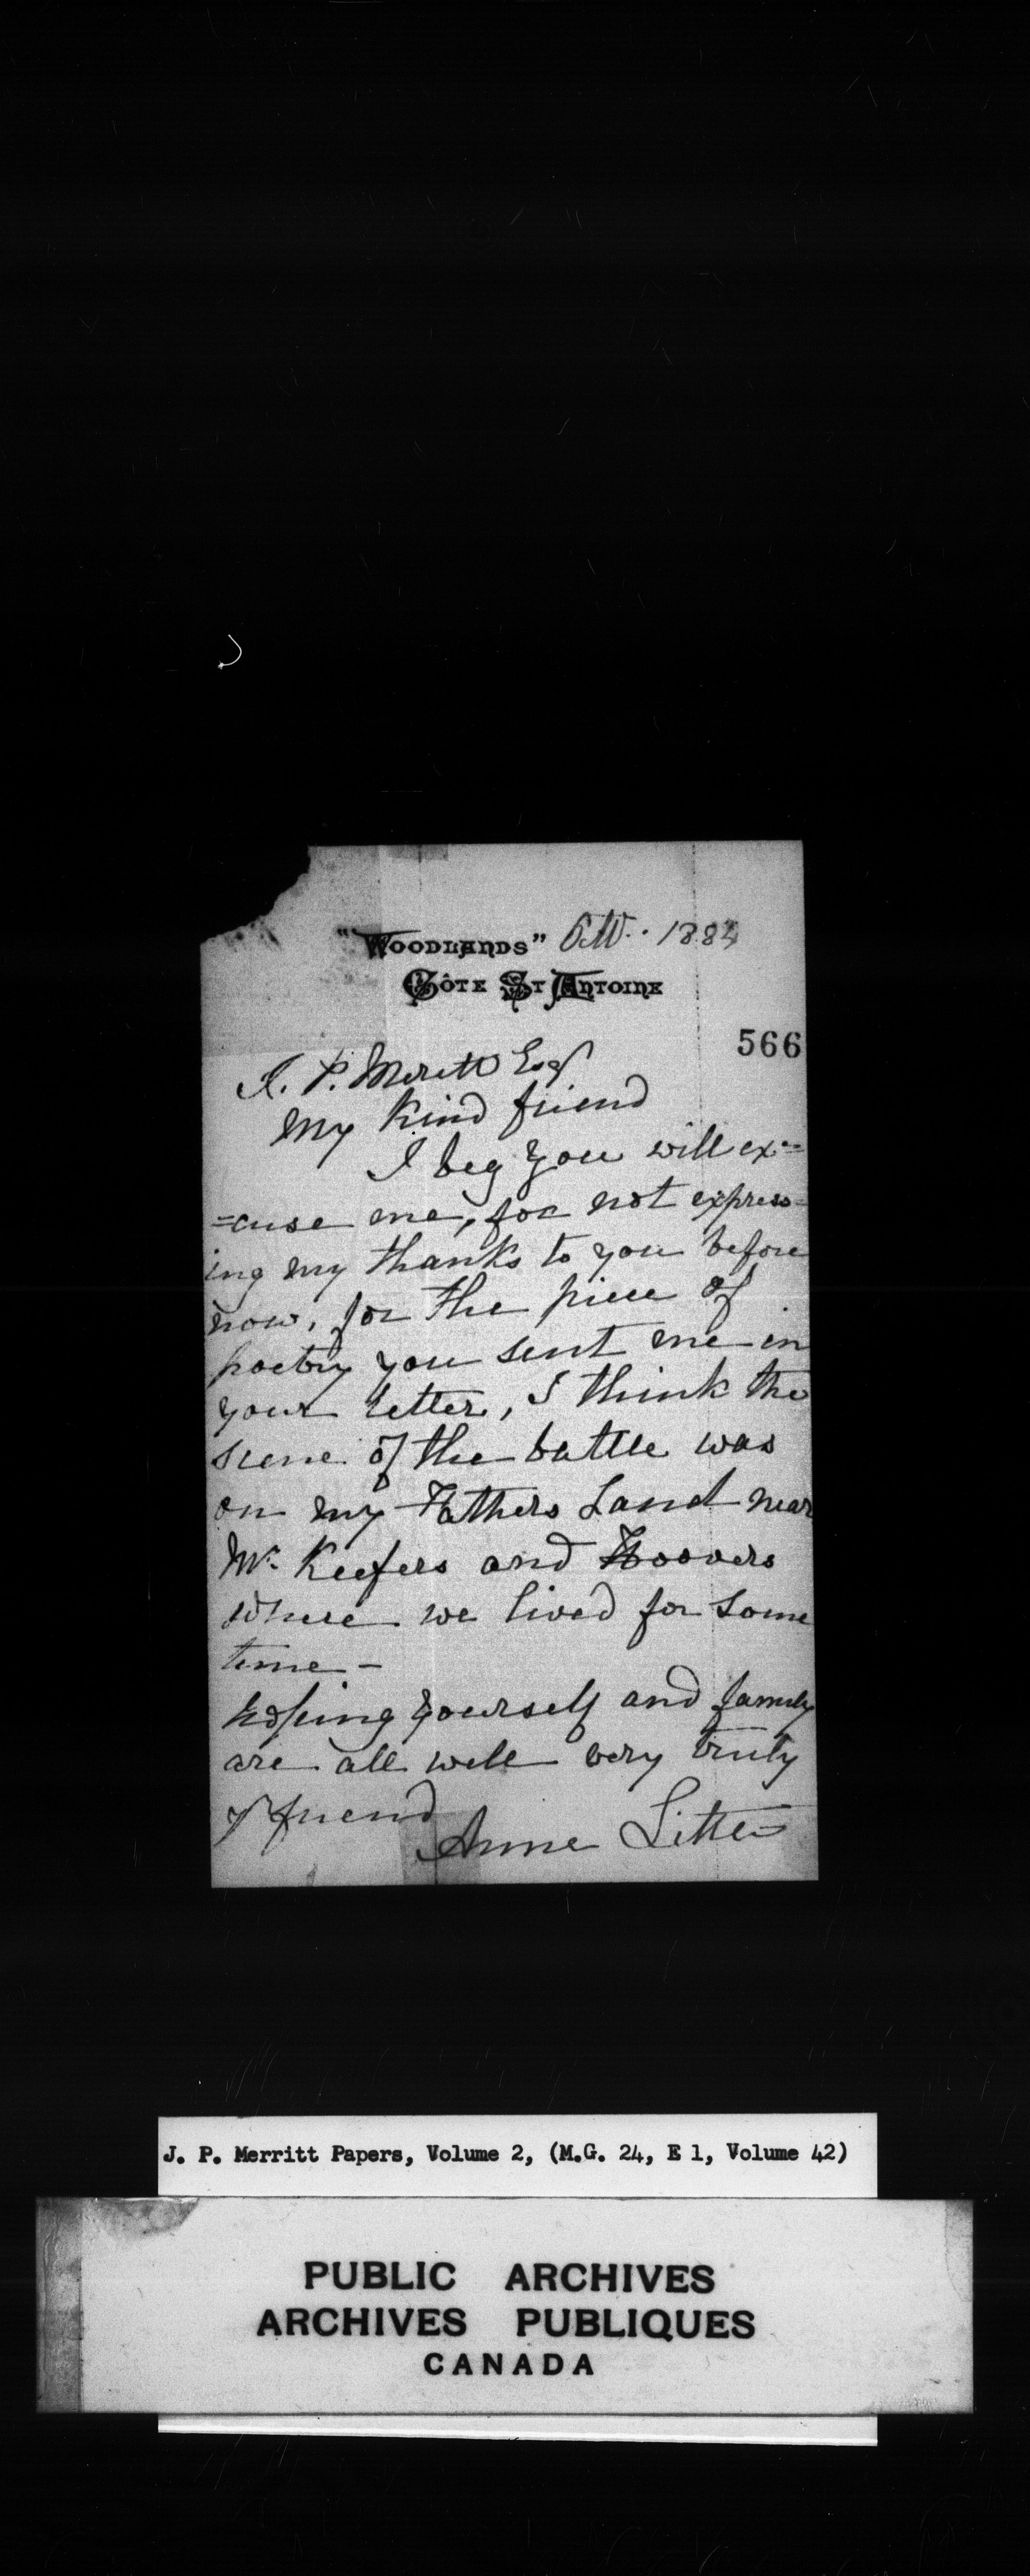 "WOODLANDS" 1884
CÔTE ST ANTOINE
566
J. P. Meritt Esqr
My Kind friend
I beg you will ex=
=cuse me, for not express=
ing my thanks to you before
now, for the piece of
poetry you sent me in
your letter, I think the
scene of the battle was
on my Fathers Land near
Mr. Keefers and Hoovers
where we lived for some
time —
hoping yourself and family
are all well very truly
yr friend
Anne
J. P. Merritt Papers, Volume 2, (M.G. 24, E 1, Volume 42)
PUBLIC ARCHIVES
ARCHIVES PUBLIQUES
CANADA